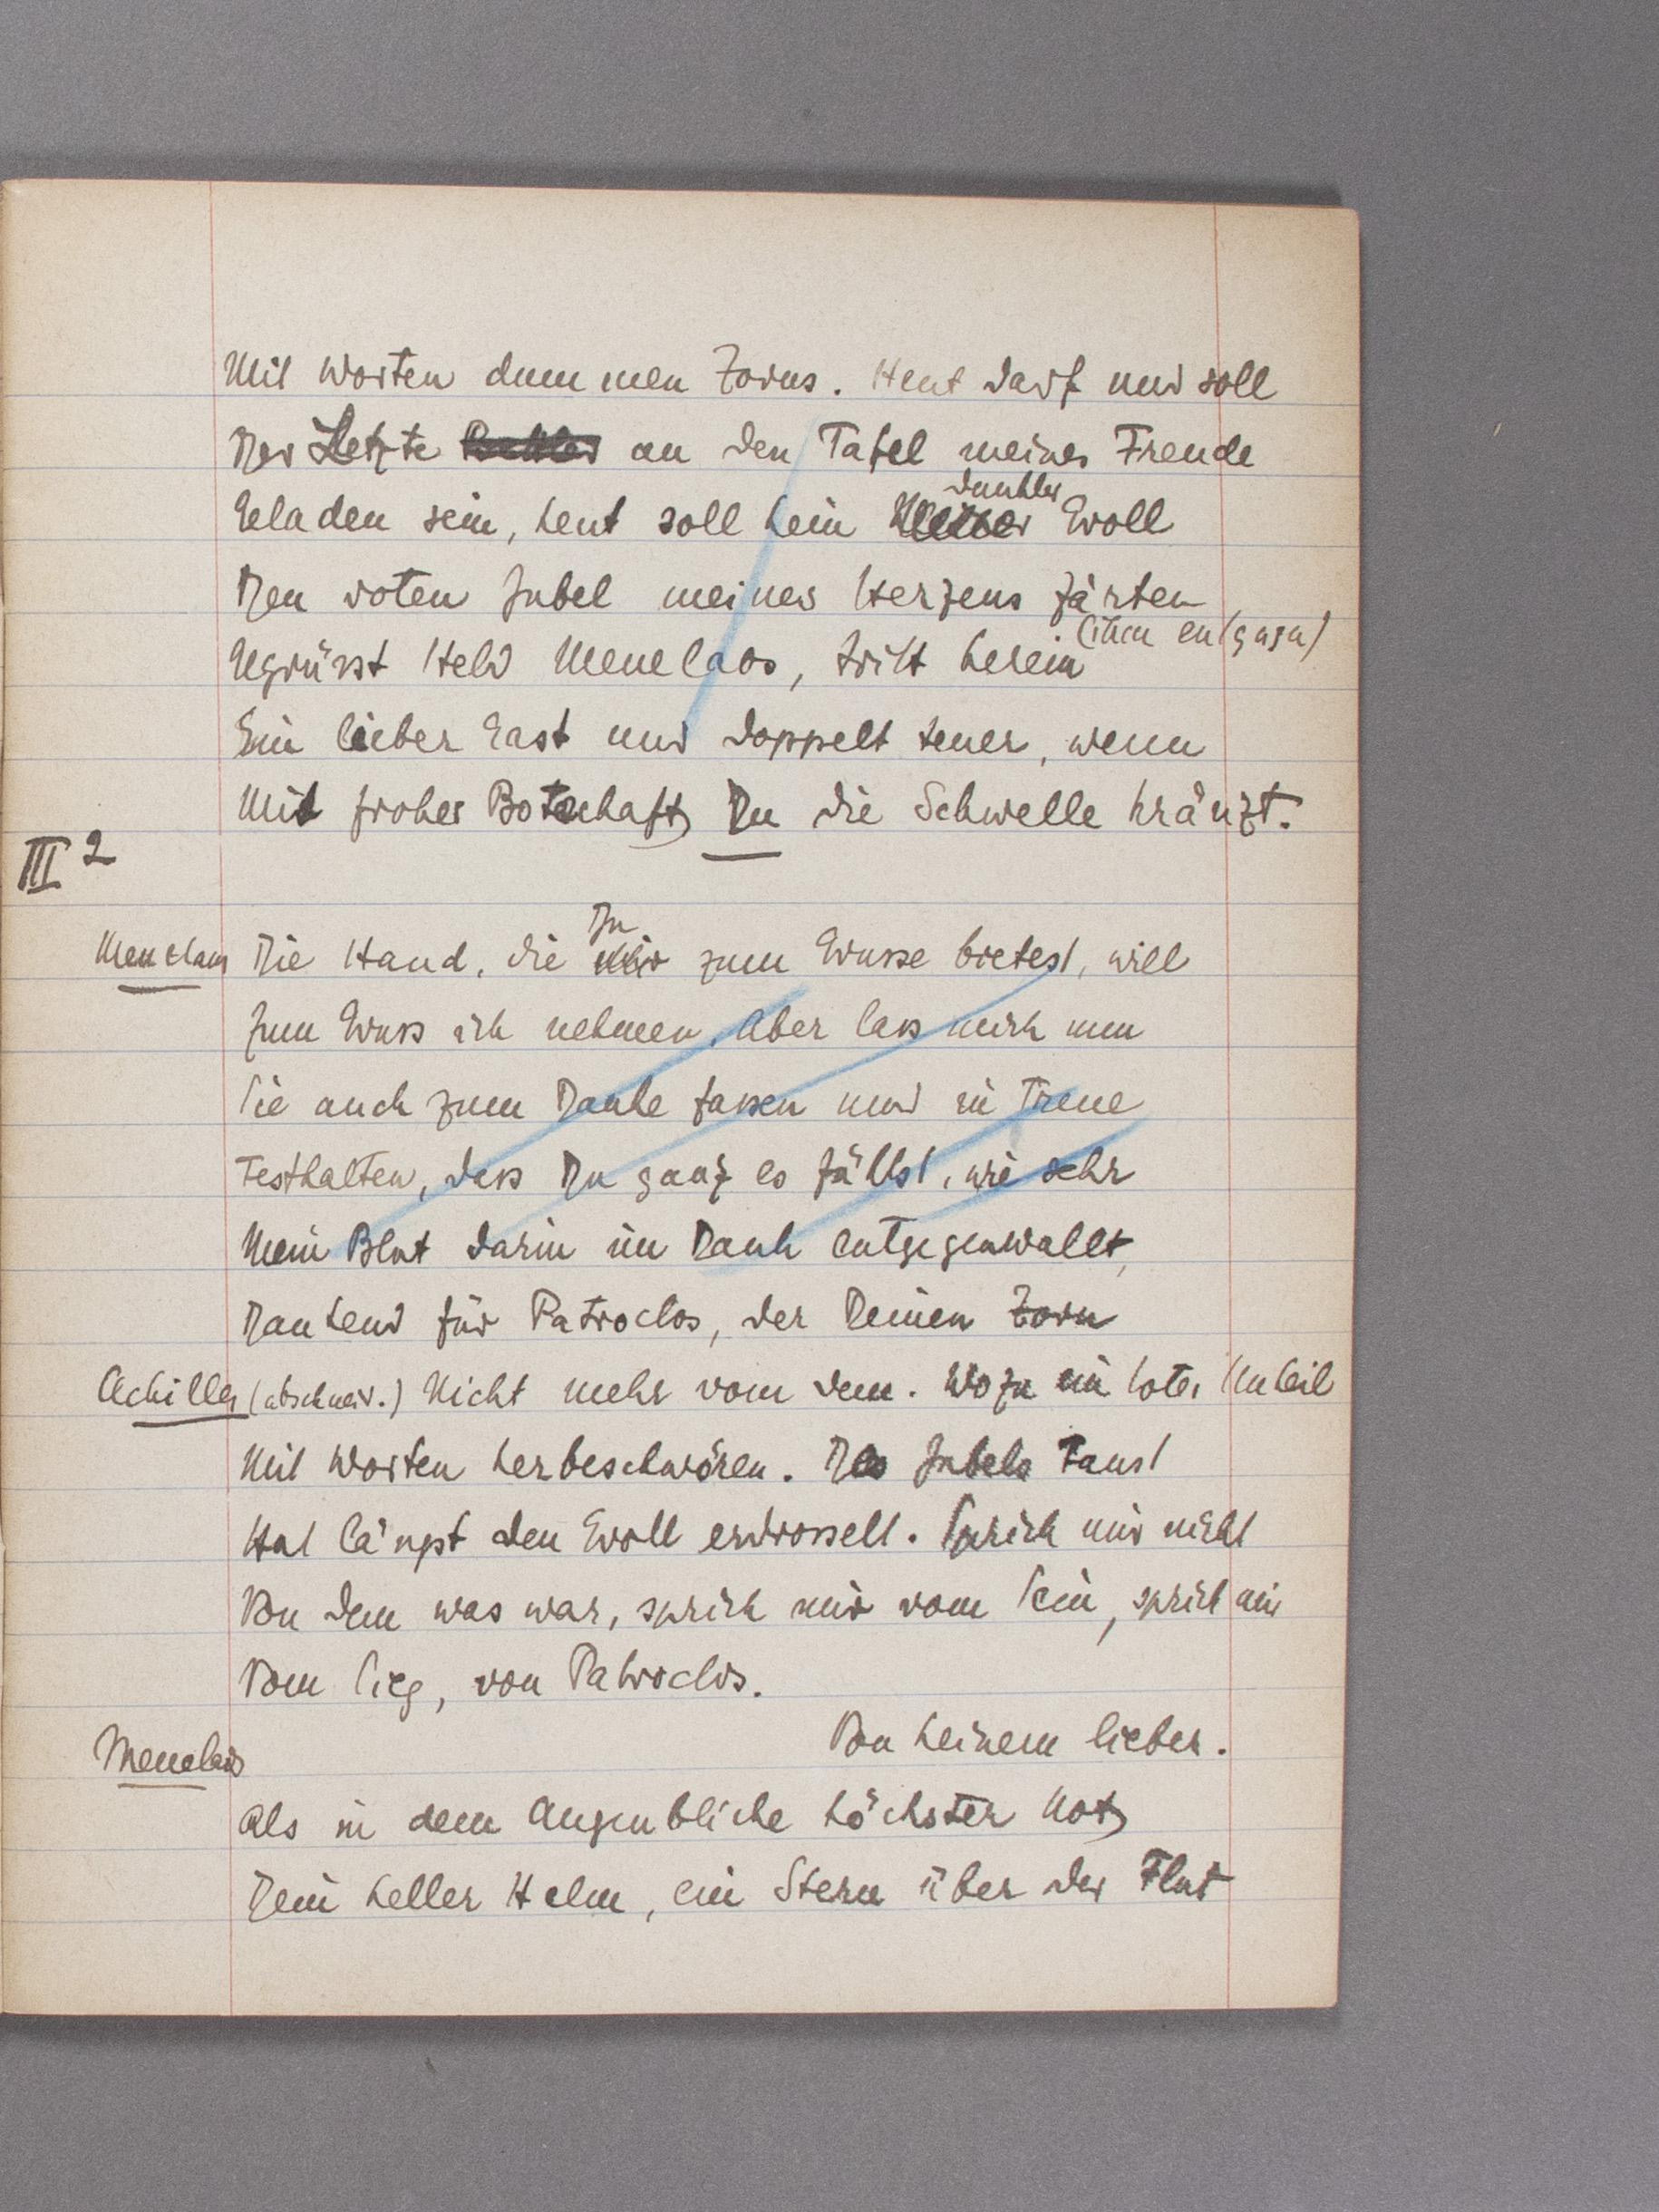 Mit Worten dummen Zorns. Heut darf und soll
Der Letzte Bettler an den Tafel meiner Freude
dunkler
Geladen sein, heut soll kein Groll
Den roten Jubel meines Herzens
(ihm entgegen)
Gegrüsst Held Menelaos, tritt herein
Ein lieber Gast und doppelt teuer, wenn
Mit froher Botschaft, Du die Schwelle kränzt.
III 2
Du
Menelaos Die Hand, die mir zum Grusse bietest, will
Zum Gruss ich nehmen. Aber lass mich nun
Sie auch zum Danke fassen und in Treue
Festhalten, dass Du ganz es fühlst, wie sehr
Mein Blut darin im Dank entgegenwallt,
Dankend für Patroclos, der Deinen Zorn
Achilles (abschneid.) Nicht mehr von dem. Wozu ein totes Unheil
Mit Worten herbeschwören. Des Jubels Faust
Hat längst den Groll erdrosselt. Sprich mir nicht
Von dem was war, sprich mir vom Sein, sprich mir
Vom Sieg, von Patroclos.
Menelaos Von keinem lieber.
Als in dem Augenblicke höchster Not,
Dein heller Helm, ein Stern über der Flut